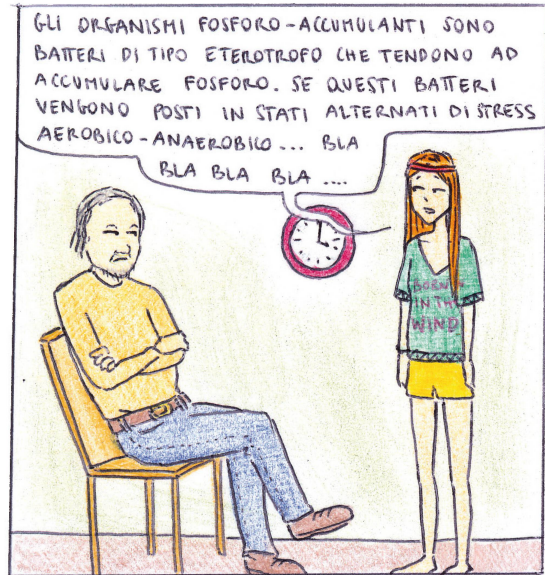 GLI ORGANISMI FOSFORO-ACCUMULANTI SONO
BATTERI DI TIPO ETEROTROFO CHE TENDONO AD
ACCUMULARE FOSFORO. SE QUESTI BATTERI
VENGONO POSTI IN STATI ALTERNATI DI STRESS
AEROBICO-ANAEROBICO... BLA
BLA BLA BLA ....
BORN
IN THE
WIND